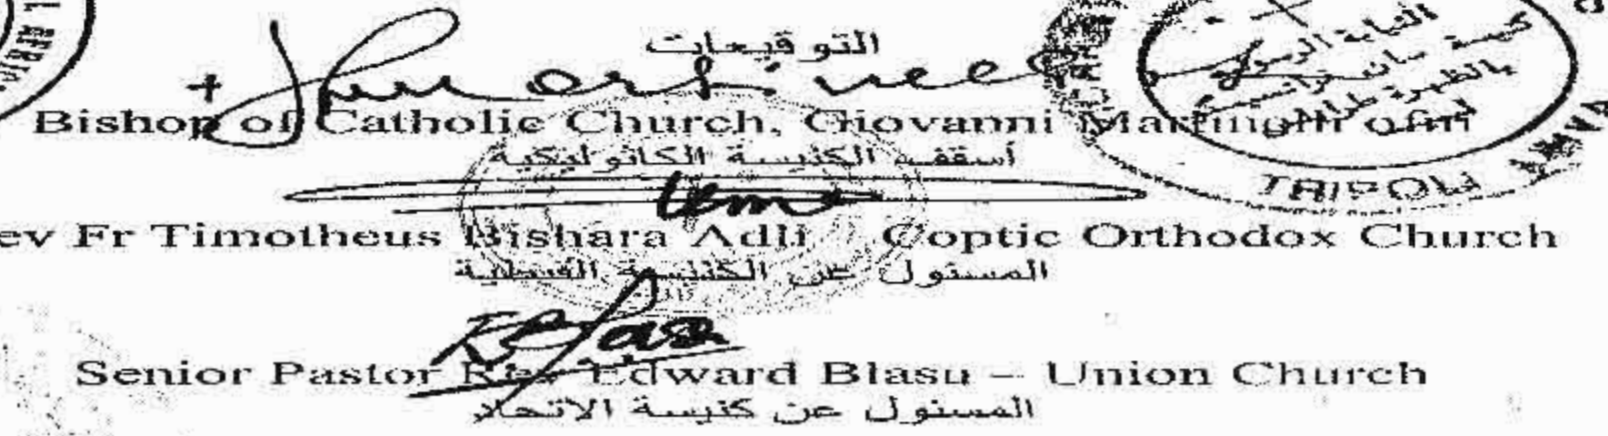 التوقيعات
Bishop of Catholic Church, Giovanni Martinelli ofm
أسقف الكنيسة الكاثوليكية
ev Fr Timotheus Bishara Adli Coptic Orthodox Church
المسئول عن الكنيسة القبطية
Senior Pastor Rev Edward Blasu – Union Church
المسئول عن كنيسة الاتحاد
كنيسة سان فرانسيس
TRIPOLI